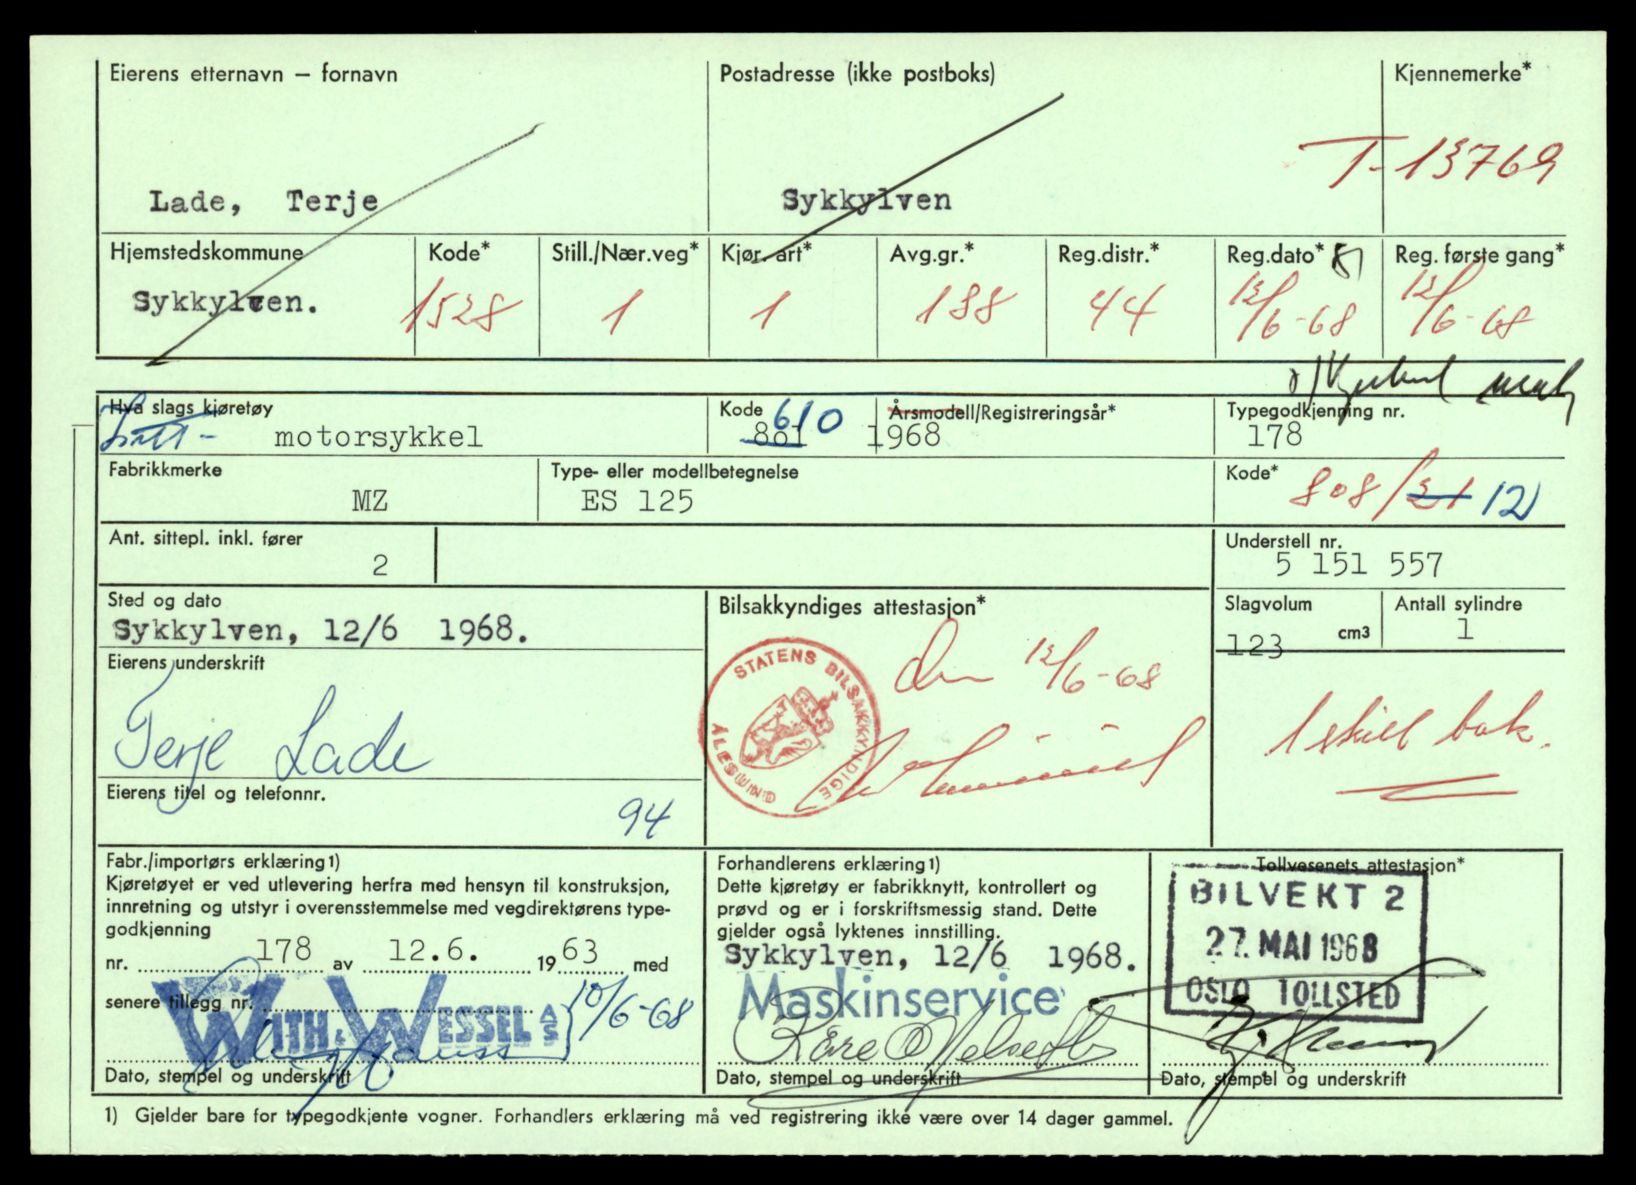 Eierens etternavn – fornavn
Postadresse (ikke postboks)
Kjennemerke*
T-13769
Lade, Terje
Sykkylven
Hjemstedskommune
Kode*
Still./Nær.veg*
Kjør. art*
Avg.gr.*
Reg.distr.*
Reg.dato*
Reg. første gang*
Sykkylven.
1528
1
1
188
44
12/6-68
12/6-68
Hva slags kjøretøy
Kode
Årsmodell/Registreringsår*
Typegodkjenning nr.
Lett- motorsykkel
801 610
1968
178
Fabrikkmerke
Type- eller modellbetegnelse
Kode*
MZ
ES 125
808/21 12
Ant. sittepl. inkl. fører
2
Understell nr.
5 151 557
Sted og dato
Bilsakkyndiges attestasjon*
Slagvolum
Antall sylindre
Sykkylven, 12/6 1968.
123 cm3
1
Eierens underskrift
STATENS BILSAKKYNDIGE
ÅLESUND
den 12/6-68
Terje Lade
1 skilt bak.
Eierens titel og telefonnr.
94
Fabr./importørs erklæring 1)
Kjøretøyet er ved utlevering herfra med hensyn til konstruksjon,
innretning og utstyr i overensstemmelse med vegdirektørens type-
godkjenning
nr. 178 av 12.6. 1963 med
senere tillegg nr.
WITH & WESSEL A/S
10/6-68
Dato, stempel og underskrift
Forhandlerens erklæring 1)
Dette kjøretøy er fabrikknytt, kontrollert og
prøvd og er i forskriftsmessig stand. Dette
gjelder også lyktenes innstilling.
Sykkylven, 12/6 1968.
Maskinservice
Dato, stempel og underskrift
Tollvesenets attestasjon*
BILVEKT 2
27. MAI 1968
OSLO TOLLSTED
Dato, stempel og underskrift
1) Gjelder bare for typegodkjente vogner. Forhandlers erklæring må ved registrering ikke være over 14 dager gammel.